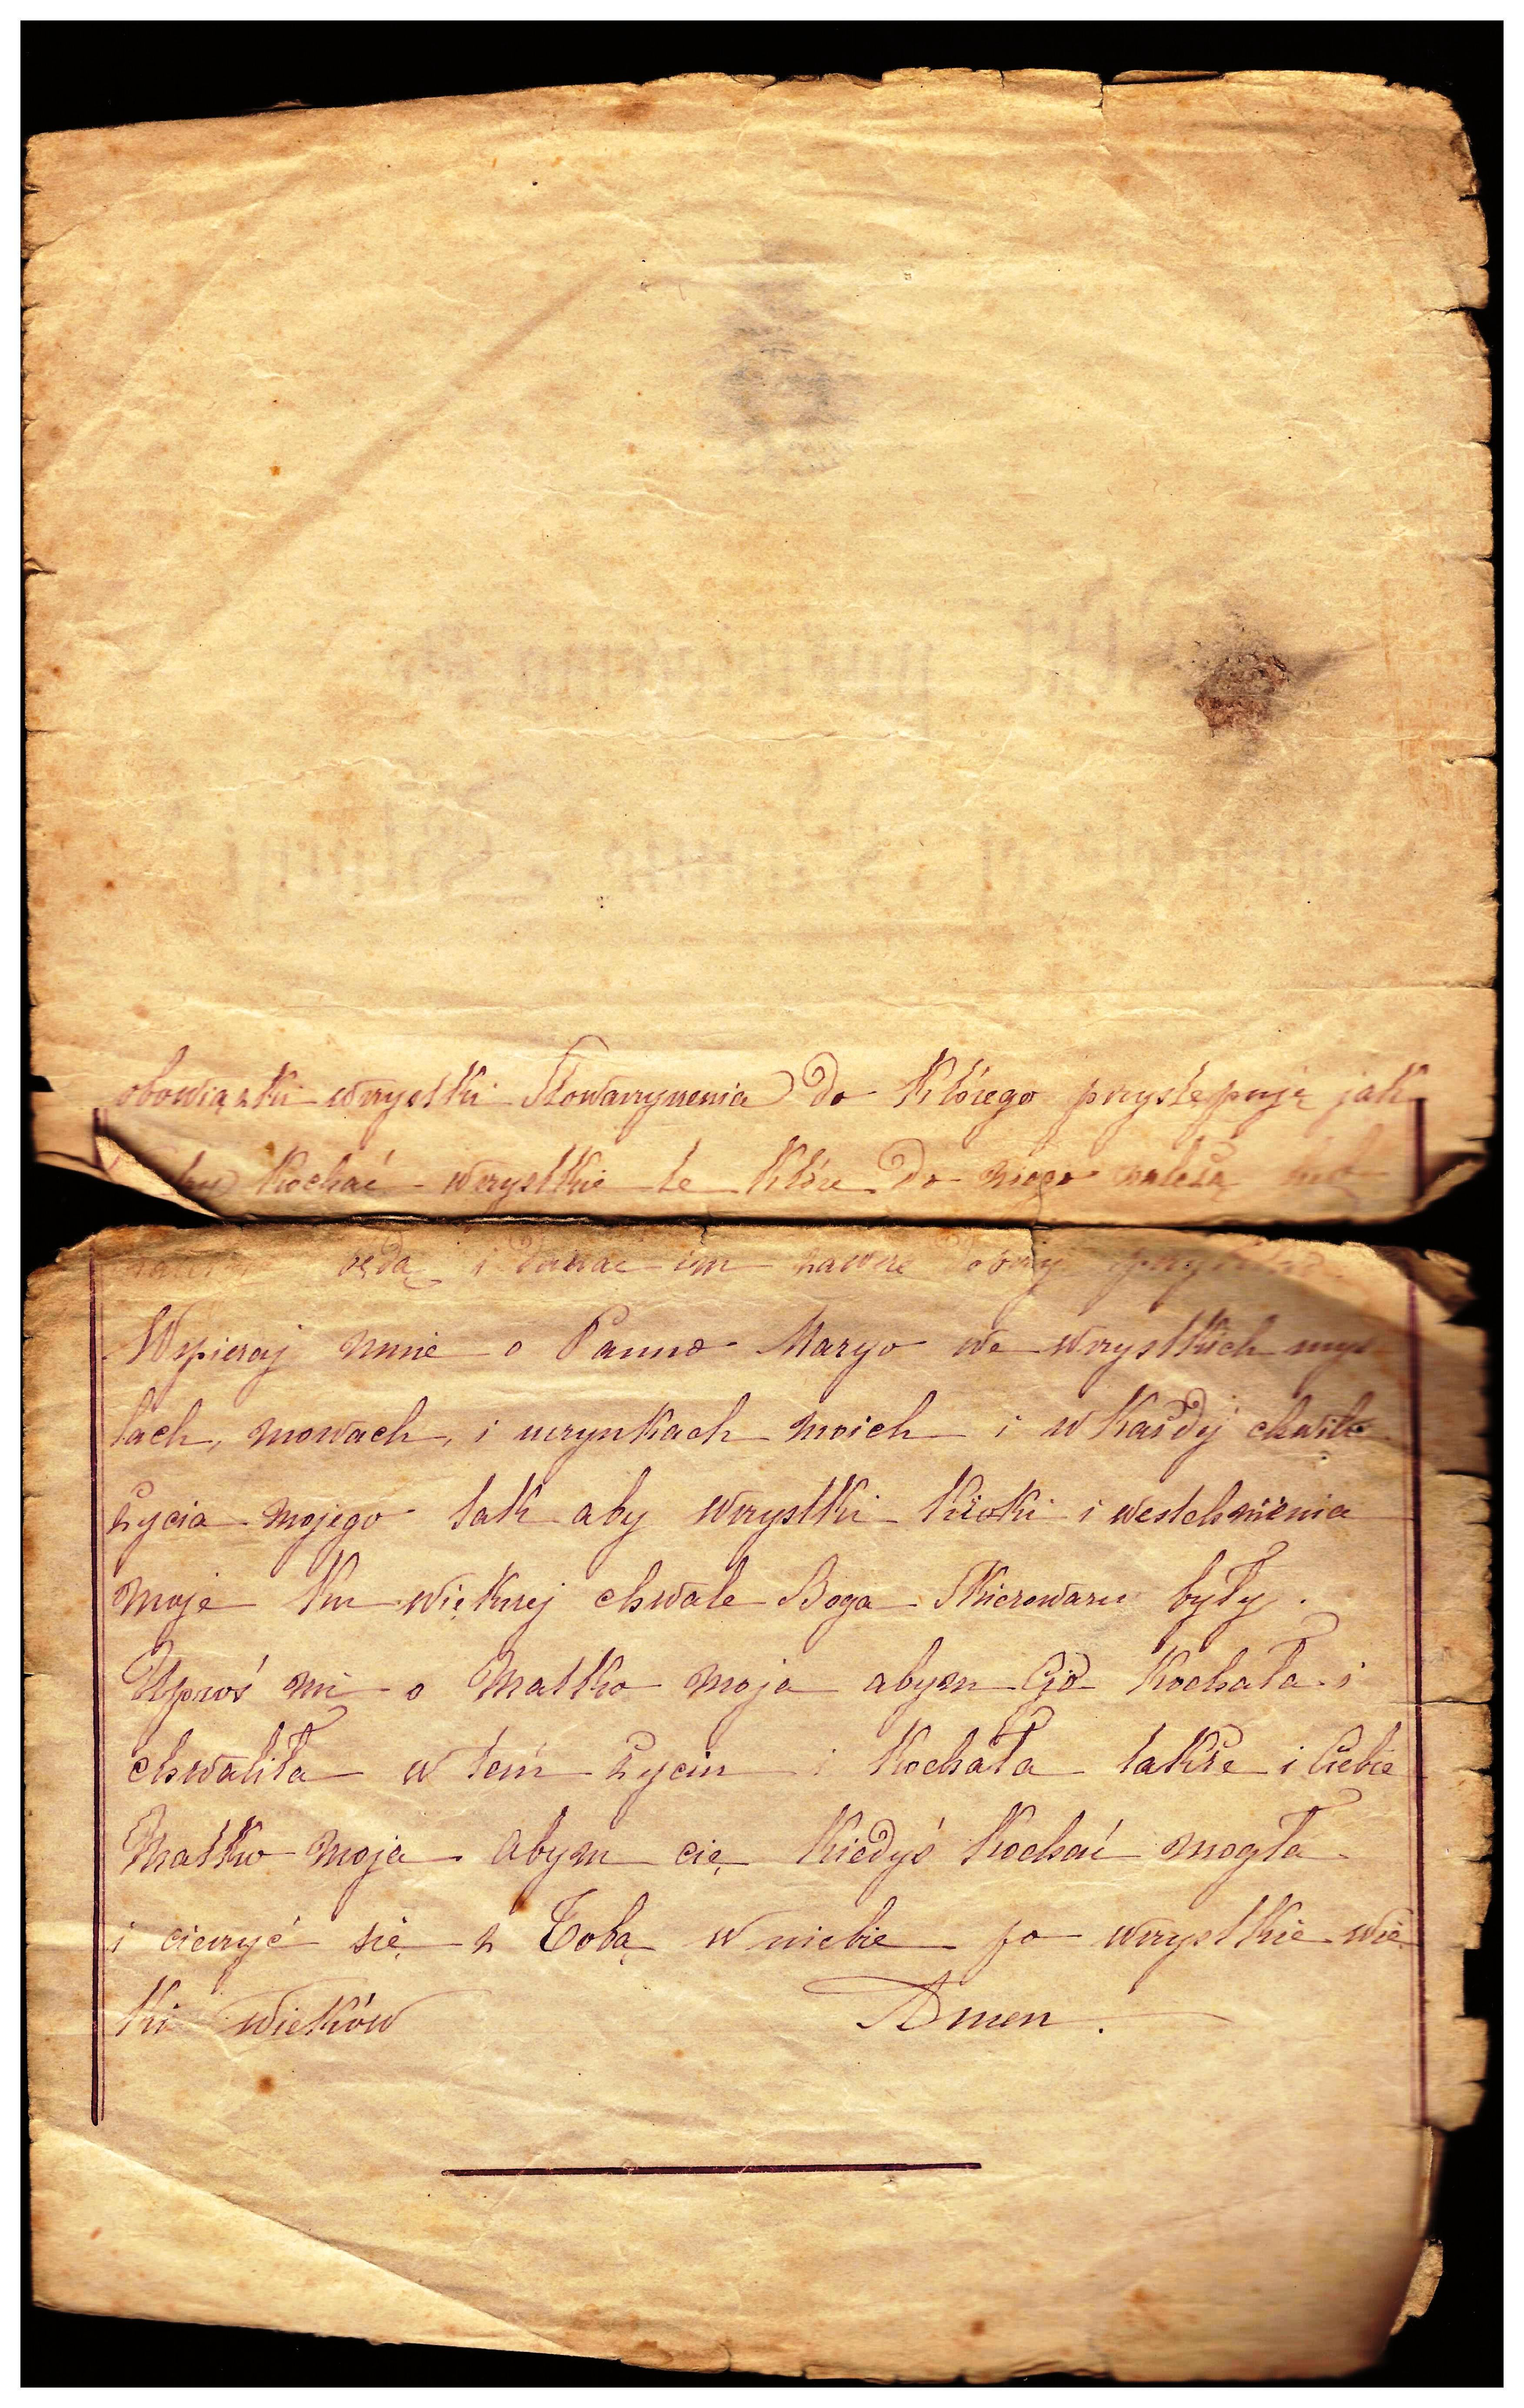 obowiązki wszystki Stowarzyszenia do którego przystępuję jak
kochać wszystkie te które do niego należą
będą i dawać im zawsze dobry
Wspieraj mnie o Panno Maryo we wszystkich myś
lach, mowach, i uczynkach moich i w każdej chwile
życia mojego tak aby wszystki kroki i westchnienia
moje ku większej chwale Boga skierowanu były.
Uproś mi o Matko moja abym Go kochała i
chwaliła w tem życiu i kochała także i Ciebie
Matko moja abym cię kiedyś kochać mogła
i cieszyć się z Tobą w niebie po wszystkie wie
ki wieków Amen.